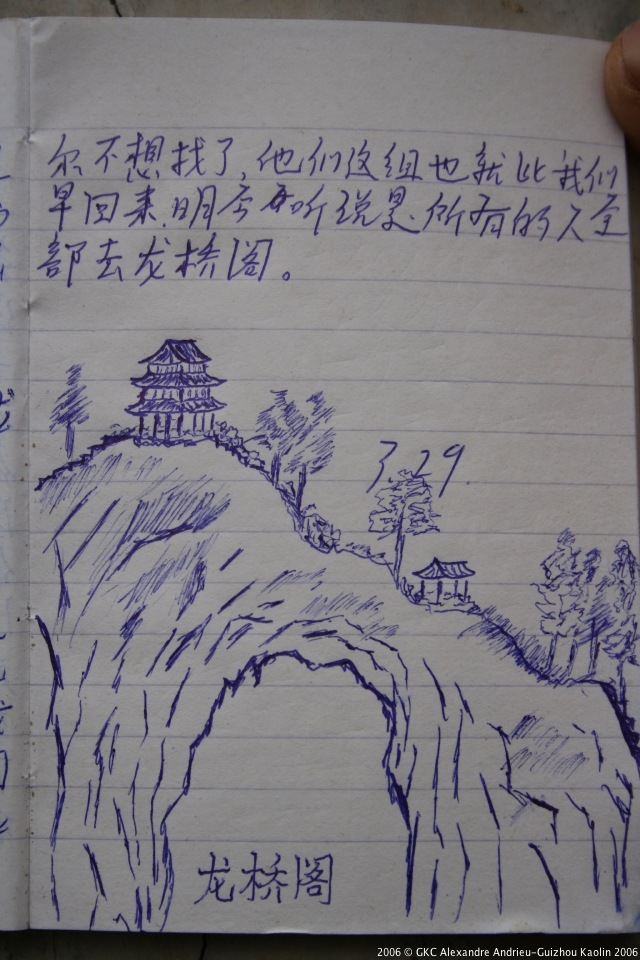 尔不想找了，他们这组也就比我们
早回来，明天 听说是，所有的人全
部去龙桥阁。
3.29.
龙桥阁
2006 © GKC Alexandre Andrieu-Guizhou Kaolin 2006